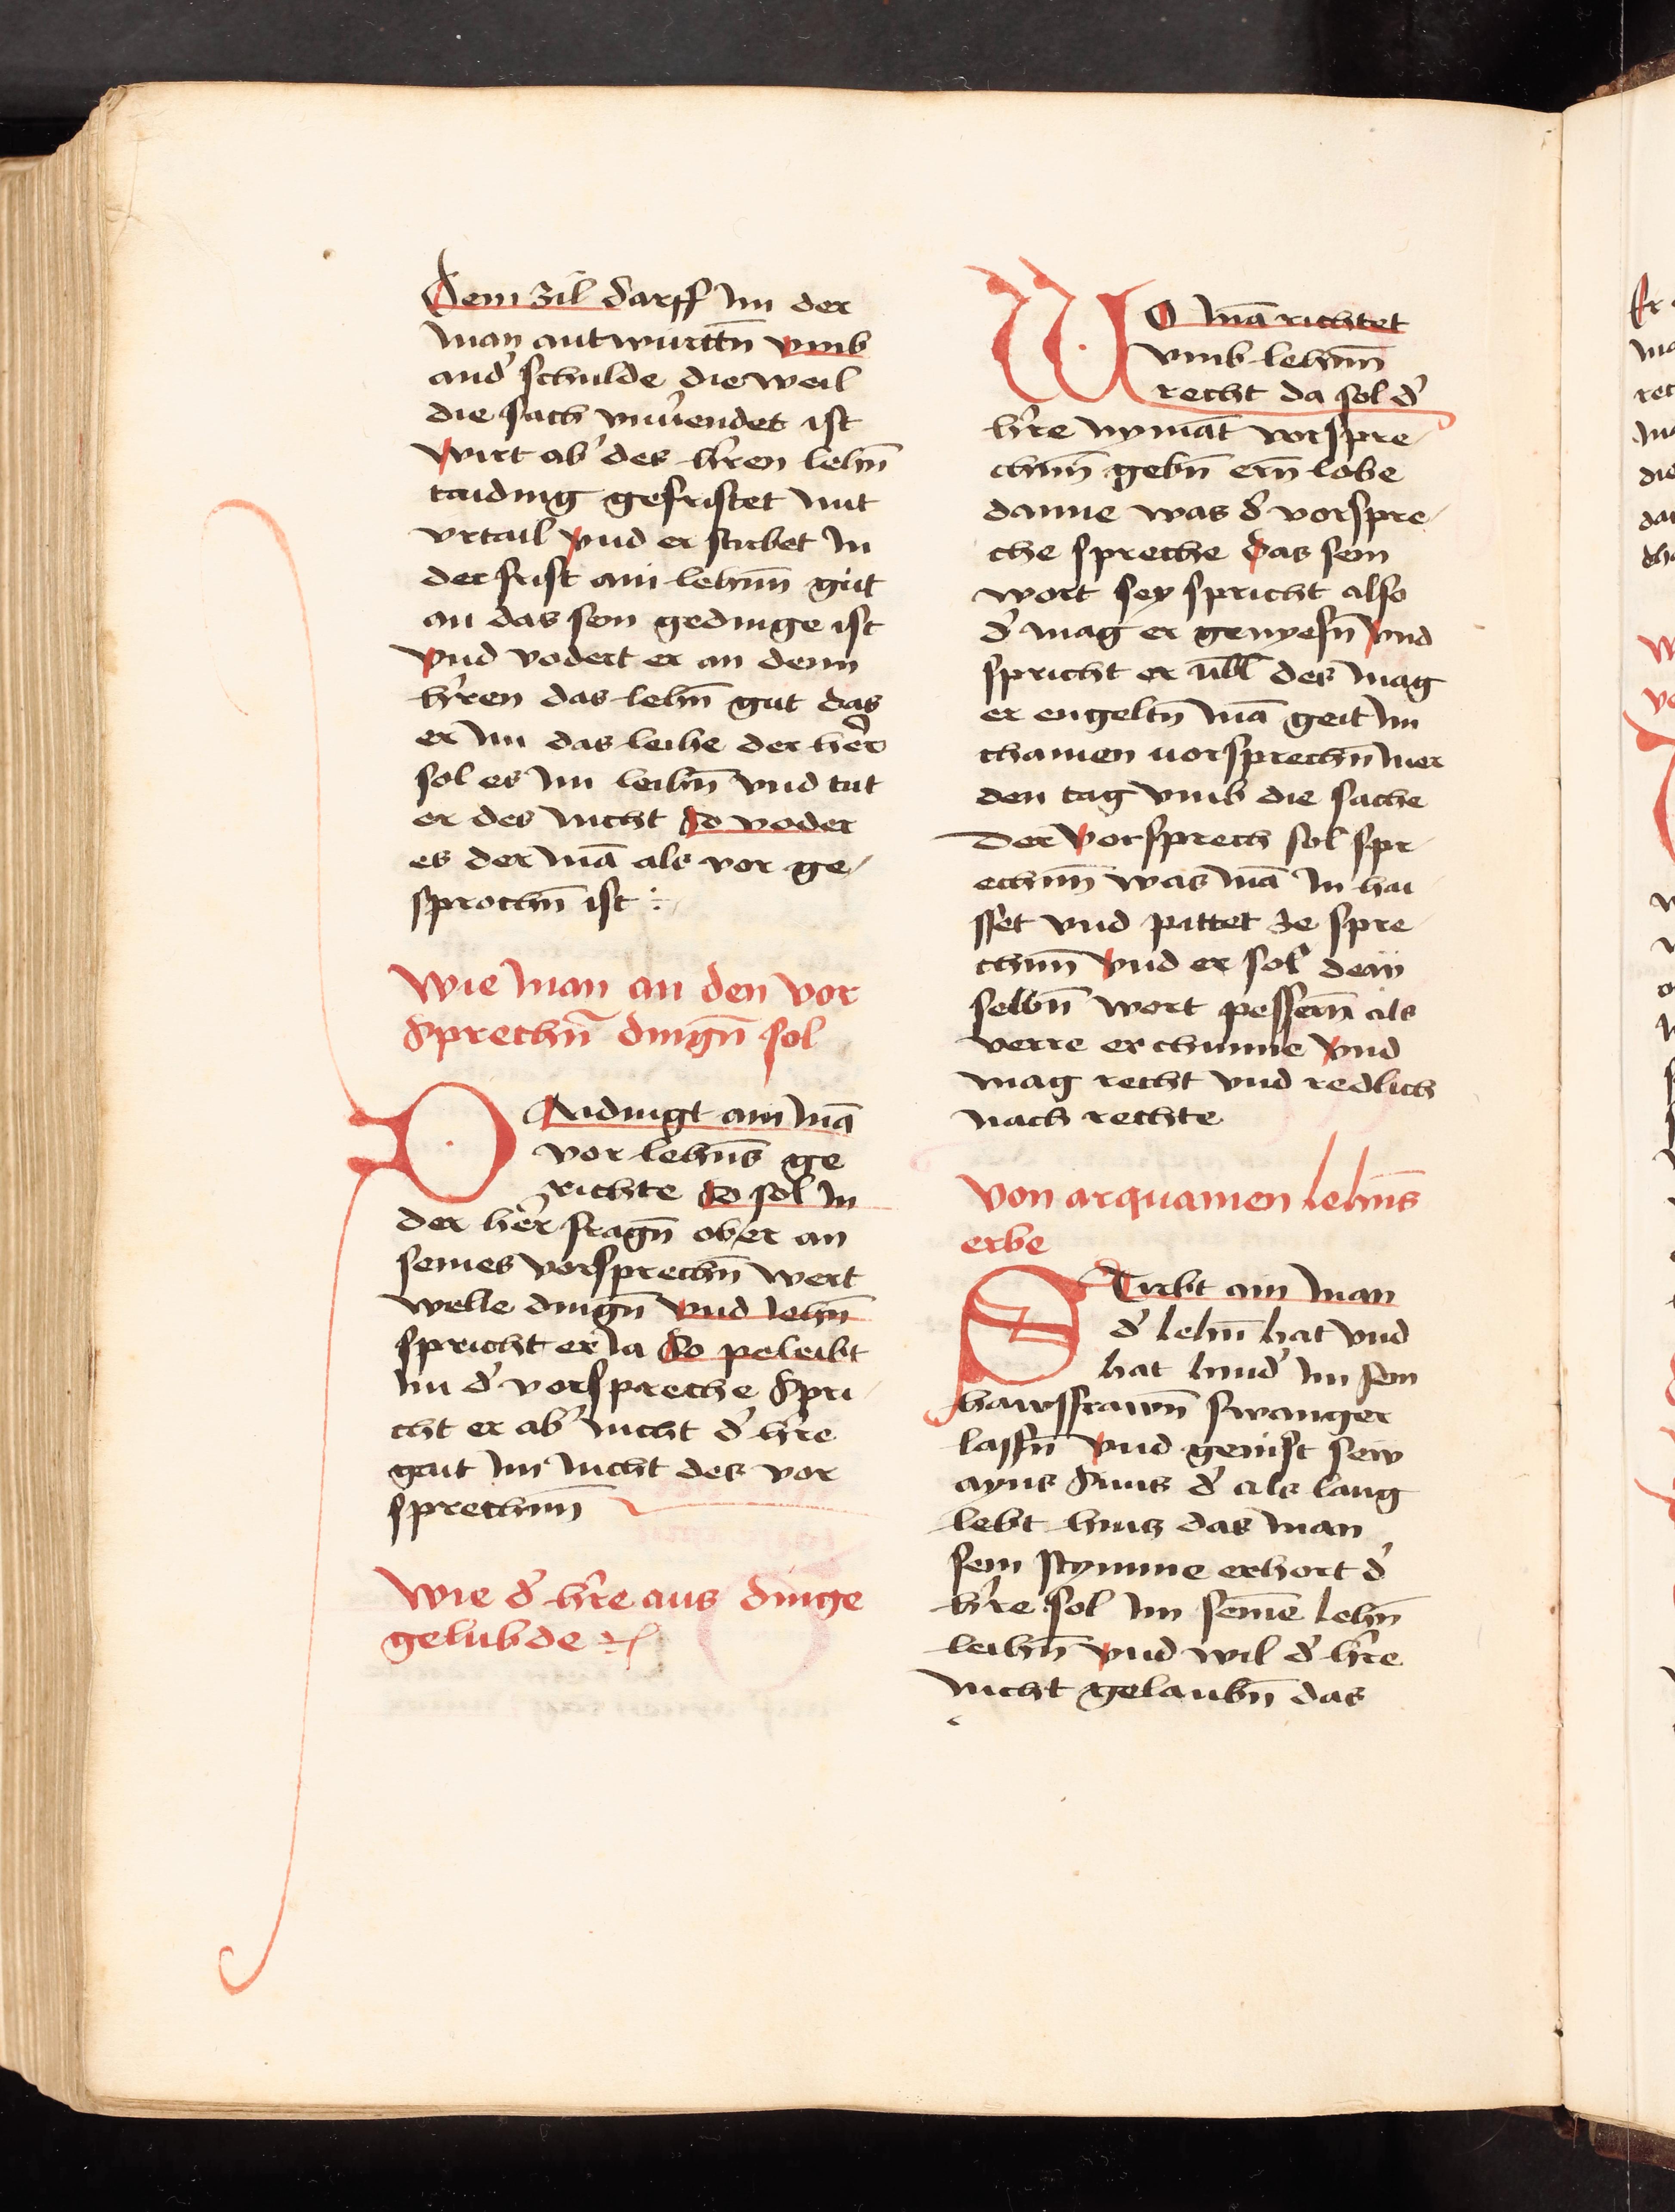 dem zil darff im der
man antwurttn̄ vmb
and' schulde die weil
die sach vnu'endet ist
wirt ab' des h'ren lehn̄
taiding gefristet mit
vrtail vnd er stirbet in
der frist ain lehnn̄ gut
an das sein gedinge ist
vnd vodert er an denn
h'ren das lehn̄ gut das
er im das leihe der her'
sol es im leihn̄ vnd tut
er des nicht so voder
es der mā als vor ge-
sprochn̄ ist
wie man an den vor
sprechn̄ dingn̄ sol
Oaidingt ain mā
vor lehns̄ ge
richte so sol in
der her' fragn̄ ob er an
seines vorsprechn̄ wert
welle dingn̄ vnd iehn̄
spricht er ia so peleibt
im d' vorspreche spri-
cht er ab' nicht d' h're
geit im nicht des vor
sprechnn̄
wie d' h're aus dinge
gelubde
WO mā richtet
vmb lehnn̄
recht da sol d'
h're nymāt vorspre-
chnn̄ gebn̄ ern̄ lobe
danne was d' vorspre-
che spreche das sein
wort sey spricht also
d' mag er genyesn̄ vnd
spricht er ubl̄ des mag
er engeltn̄ mā geit im
chainen vorsprechn̄ mer
den tag vmb die sache
Der vorsprech sol spr-
echnn̄ was mā in hai-
sset vnd pittet ze spre-
chnn̄ vnd er sol dem
selbn̄ wort pessern̄ als
verre er chunne vnd
mag recht vnd redlich
nach rechte
von arquamen lehns̄
erbe
STirbt ain man
d' lehn̄ hat vnd
hat kind' im sein
hawsfrawn̄ swanger
lassn̄ vnd genist sew
ayns suns d' als lang
lebt hintz das man
sein stymme erhort d'
h're sol im seinē lehn̄
leihn̄ vnd wil d' h're
nicht gelaubn̄ das